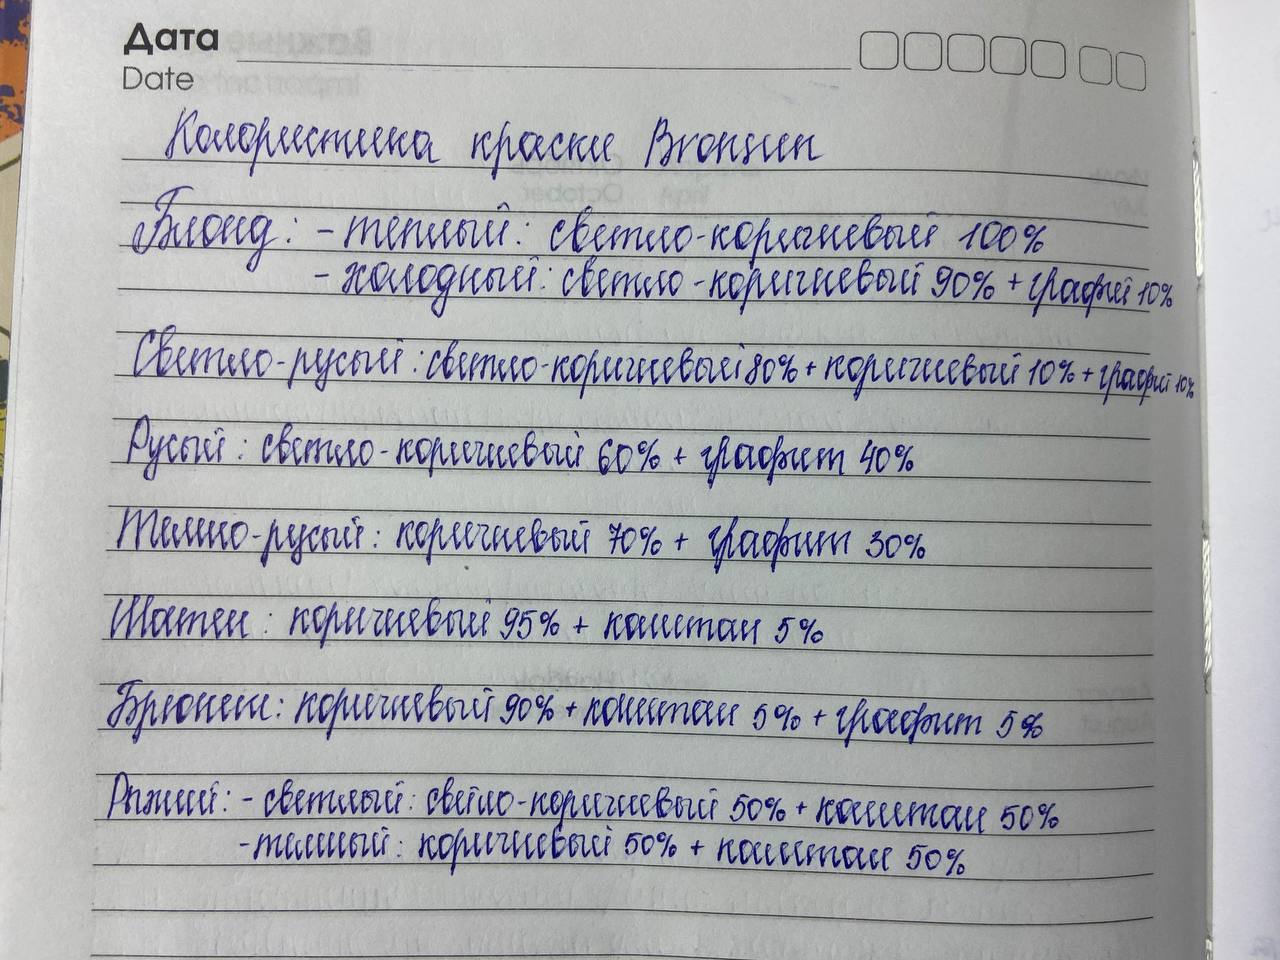 Дата
Date
Колористика краски Bronsun
Блонд: - теплый: светло-коричневый 100%
- холодный: светло-коричневый 90% + графит 10%
Светло-русый: светло-коричневый 80% + коричневый 10% + графит 10%
Русый: светло-коричневый 60% + графит 40%
Темно-русый: коричневый 70% + графит 30%
Шатен: коричневый 95% + каштан 5%
Брюнет: коричневый 90% + каштан 5% + графит 5%
Рыжий: - светлый: светло-коричневый 50% + каштан 50%
- темный: коричневый 50% + каштан 50%